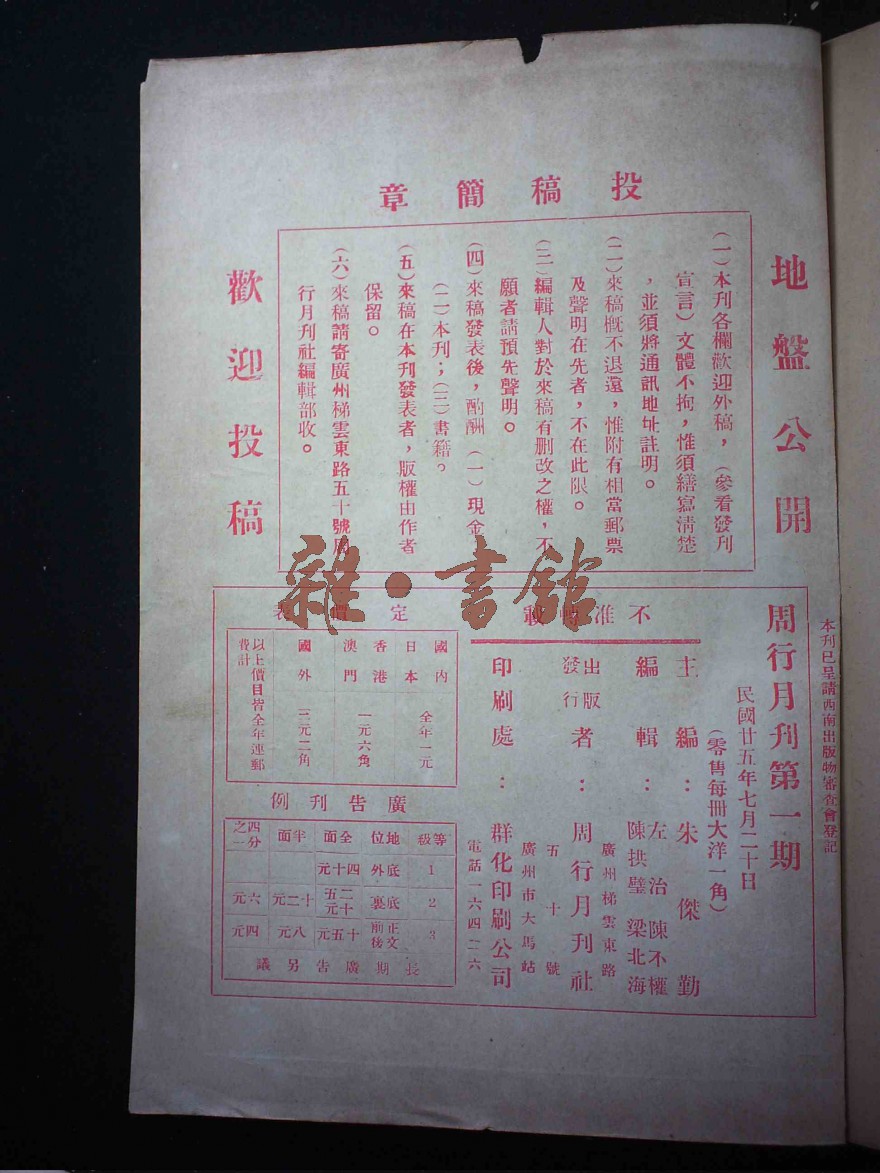 投稿簡章
地盤公開
(一)本刊各欄歡迎外稿，(參看發刊
宣言)文體不拘，惟須繕寫清楚
，並須將通訊地址註明。
(二)來稿概不退還，惟附有相當郵票
及聲明在先者，不在此限。
(三)編輯人對於來稿有刪改之權，不
願者請預先聲明。
(四)來稿發表後，酌酬(一)現金
(二)本刊；(三)書籍。
(五)來稿在本刊發表者，版權由作者
保留。
(六)來稿請寄廣州梯雲東路五十號周
行月刊社編輯部收。
歡迎投稿
本刊已呈請西南出版物審查會登記
周行月刊第一期
民國廿五年七月二十日
(零售每冊大洋一角)
不准轉載
主編：朱傑勤
編輯：左治 陳不權
陳拱璧 梁北海
出版
發行者：周行月刊社
廣州梯雲東路
五十號
印刷處：群化印刷公司
廣州市大馬站
電話一六四二六
定價表
國內 日本 全年一元
香港 澳門 一元六角
國外 三元二角
以上價目皆全年連郵
費計
廣告刊例
等級 地位 全面 半面 四分之一
1 底外 四十元
2 底裏 二十五元 十二元 六元
3 正文前後 十五元 八元 四元
長期廣告另議
雜·書館